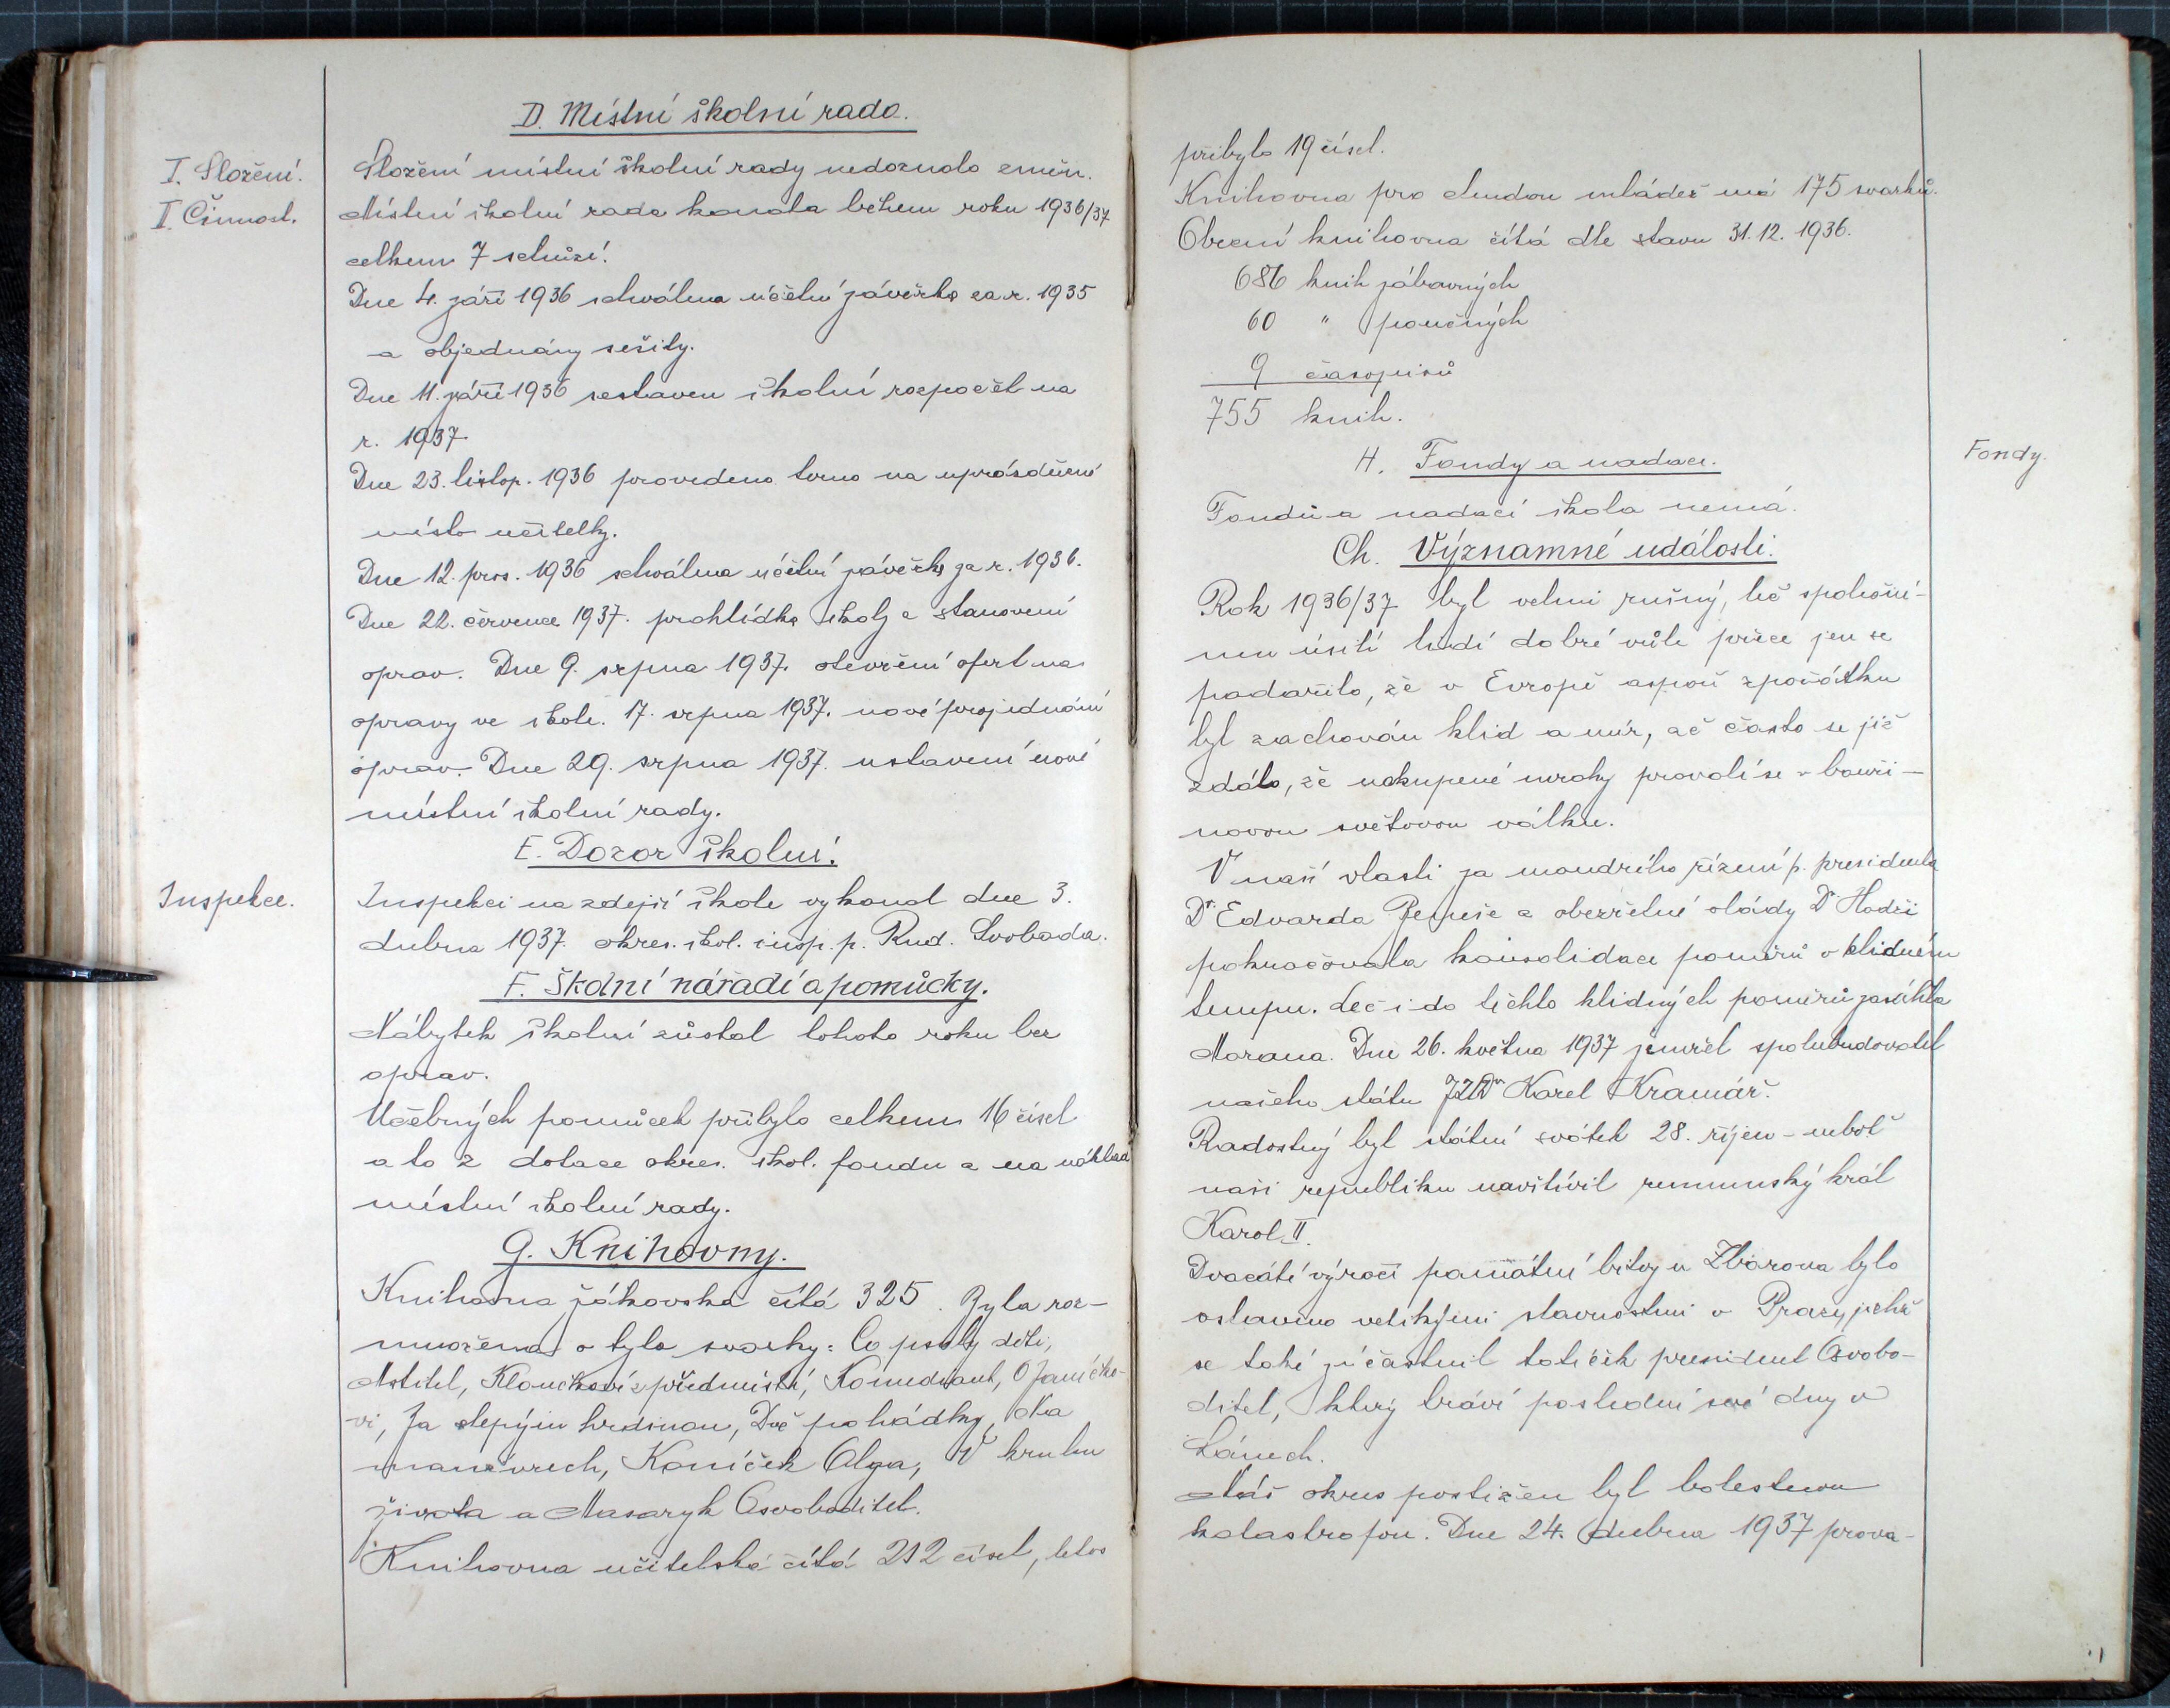 D. Místní školní rada.
I. Složení.
Složení místní školní rady nedoznalo změn.
II. Činnost.
Místní školní rada konala během roku 1936/37
celkem 7 schůzí.
Dne 4. září 1936 schválena účetní závěrka za r. 1935
a objednány sešity.
Dne 11. září 1936 sestaven školní rozpočet na
r. 1937.
Dne 23. listop. 1936 provedeno terno na uprázdněné
místo učitelky.
Dne 12. pros. 1936 schválena účetní závěrka za r. 1936.
Dne 22. července 1937. prohlídka školy a stanovení
oprav. Dne 9. srpna 1937. otevření ofert na
opravy ve škole. 17. srpna 1937. nové projednání
oprav. Dne 29. srpna 1937. ustavení nové
místní školní rady.
E. Dozor školní.
Inspekce.
Inspekci na zdejší škole vykonal dne 3.
dubna 1937. okres. škol. insp. p. Rud. Svoboda.
F. Školní nářadí a pomůcky.
Nábytek školní zůstal tohoto roku bez
oprav.
Učebných pomůcek přibylo celkem 16 čísel
a to z dotace okres. škol. fondu a na náklad
místní školní rady.
G. Knihovny.
Knihovna žákovská čítá 325. Byla roz-
množena o tyto svazky: Co psaly děti,
Mstitel, Kloučkové z předměstí, Komediant, O Janíčko-
vi, Za slepým hrdinou, Dvě pohádky, Na
manévrech, Koníček Olga, V kruhu
života a Masaryk Osvoboditel.
Knihovna učitelská čítá 212 čísel, letos
přibylo 19 čísel.
Knihovna pro chudou mládež má 175 svazků.
Obecní knihovna čítá dle stavu 31. 12. 1936.
686 knih zábavných
60 " poučných
9 časopisů
755 knih.
H. Fondy a nadace.
Fondy.
Fondů a nadací škola nemá.
Ch. Významné události.
Rok 1936/37 byl velmi rušný, leč společné-
mu úsilí lidí dobré vůle přece jen se
podařilo, že v Evropě aspoň zpočátku
byl zachován klid a mír, ač často se již
zdálo, že nakupené mraky provalí se v bouři –
novou světovou válku.
V naší vlasti za moudrého řízení p. presidenta
Dr. Edvarda Beneše a obezřetné vlády Dr Hodži
pokračovala konsolidace poměrů v klidném
tempu. Leč i do těchto klidných poměrů zasáhla
Morana. Dne 26. května 1937 zemřel spolubudovatel
našeho státu JUDr Karel Kramář.
Radostný byl státní svátek 28. říjen – neboť
naši republiku navštívil rumunský král
Karol II.
Dvacáté výročí památné bitvy u Zborova bylo
oslaveno velikými slavnostmi v Praze, jichž
se také zúčastnil tatíček president Osvobo-
ditel, který tráví poslední své dny v
Lánech.
Náš okres postižen byl bolestnou
katastrofou. Dne 24. dubna 1937 prova-